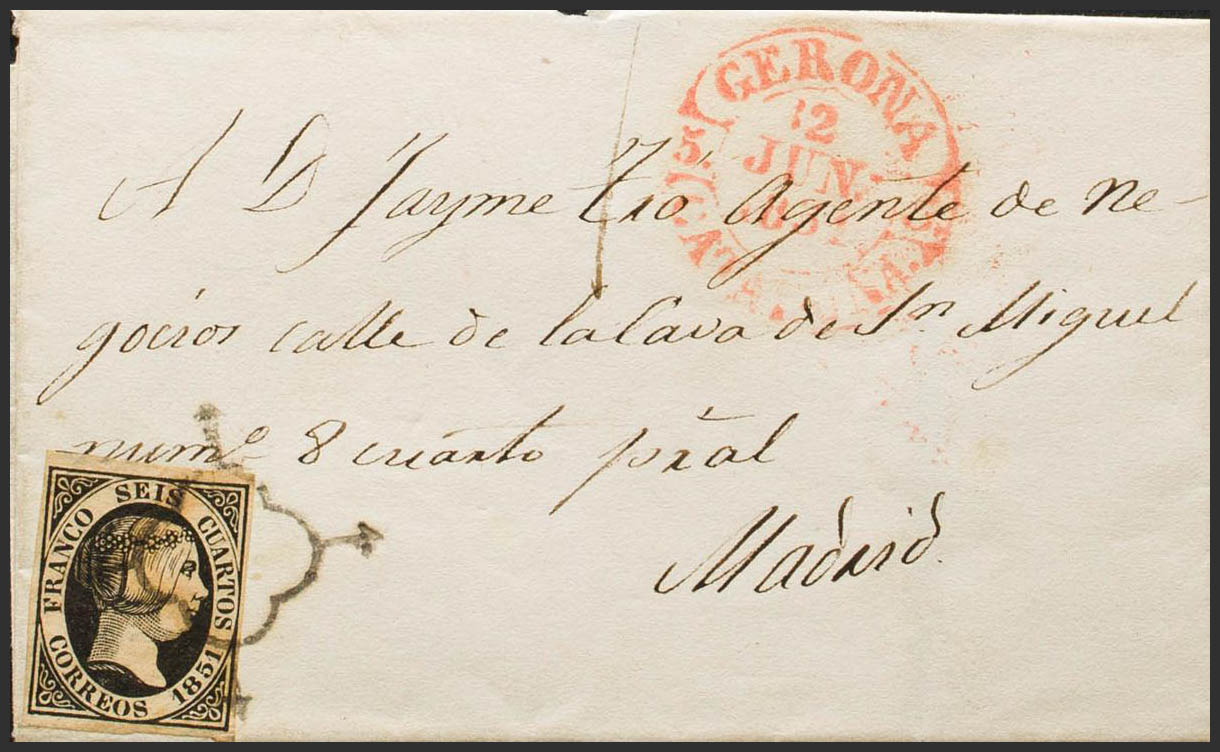 GERONA
12
JUN.
A D Jayme Tió Agente de Ne-
gocios calle de la Cava de Sn Miguel
numo 8 cuarto pñal
Madrid.
FRANCO SEIS CUARTOS
CORREOS 1851